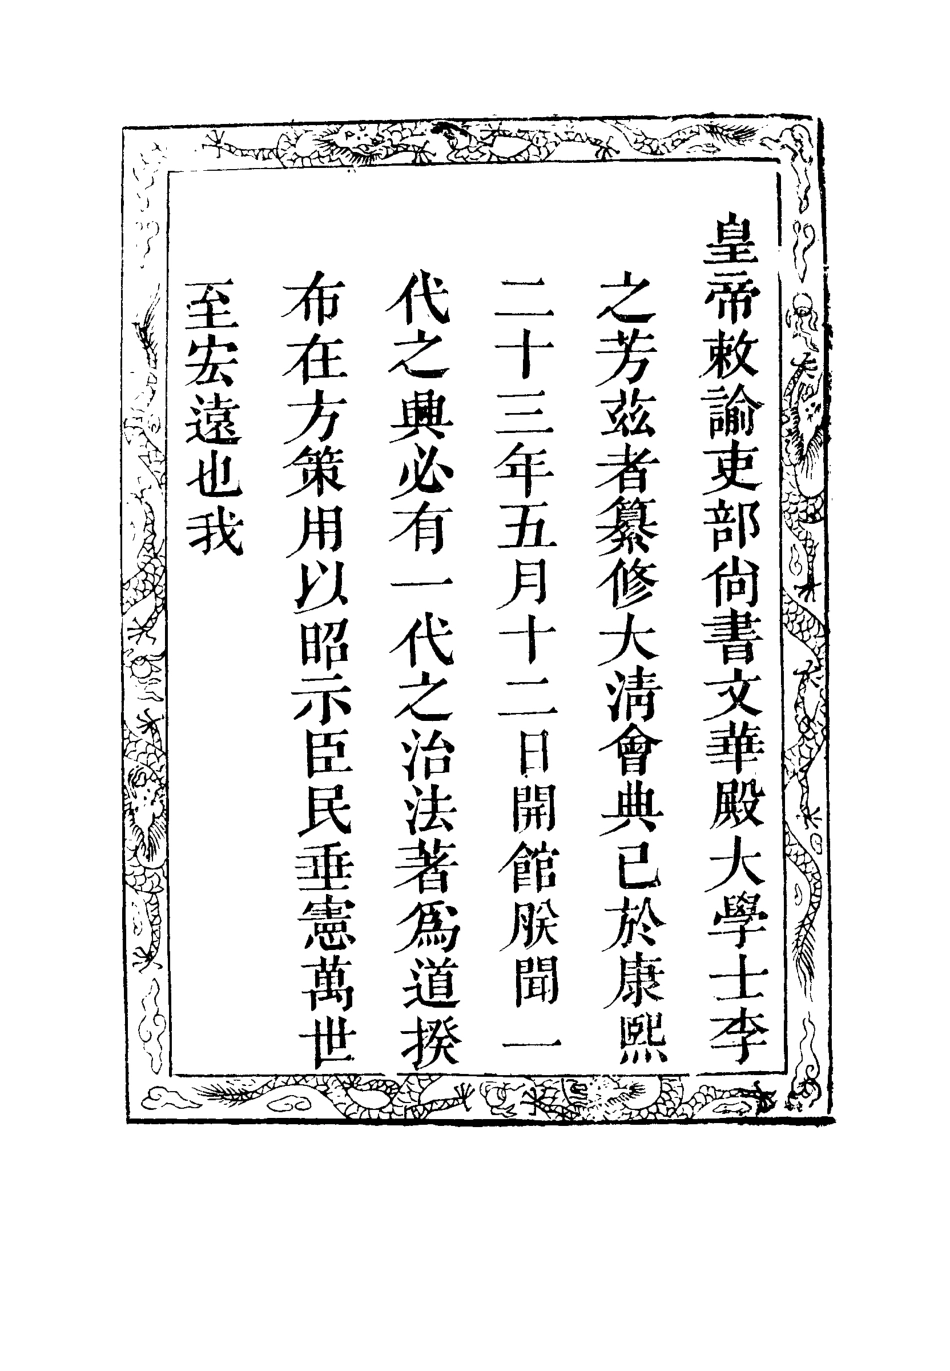 皇帝敕諭吏部尚書文華殿大學士李
之芳茲者纂修大清會典已於康熙
二十三年五月十二日開館朕聞一
代之興必有一代之治法著爲道揆
布在方策用以昭示臣民垂憲萬世
至宏遠也我